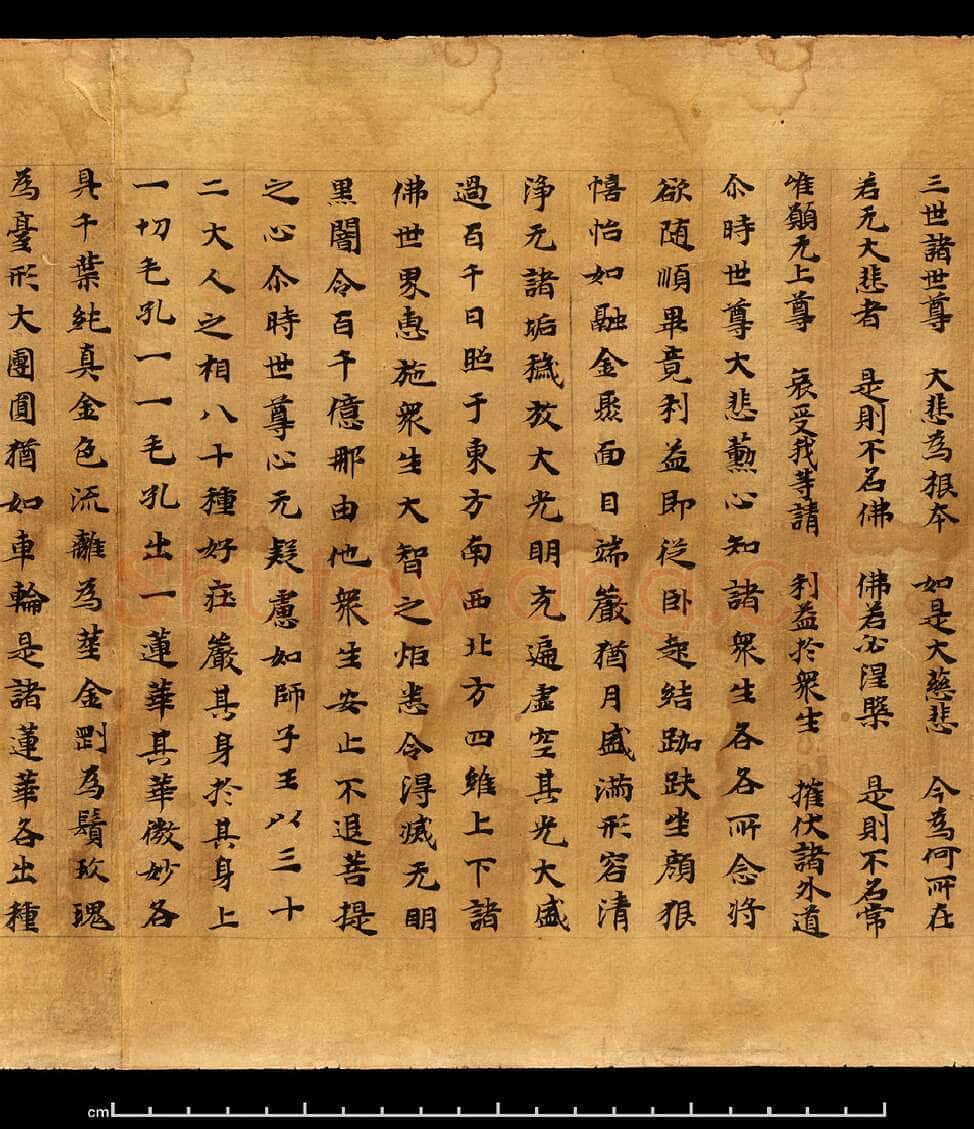 三世諸世尊 大悲為根本 如是大慈悲 今為何所在
若无大悲者 是則不名佛 佛若必涅槃 是則不名常
唯願无上尊 哀受我等請 利益於衆生 摧伏諸外道
尒時世尊大悲勳心知諸衆生各各所念将
欲随順畢竟利益即従卧起結跏趺坐顔貌
憘怡如融金聚面目端嚴猶月盛満形容清
浄无諸垢穢放大光明充遍虚空其光大盛
過百千日照于東方南西北方四維上下諸
佛世界恵施衆生大智之炬悉令得滅无明
黒闇令百千億那由他衆生安止不退菩提
之心尒時世尊心无疑慮如師子王以三十
二大人之相八十種好荘嚴其身於其身上
一切毛孔一一毛孔出一蓮華其華微妙各
具千葉純真金色流離為莖金剛為鬚玫瑰
為臺形大團圓猶如車輪是諸蓮華各出種
Shufawang.CN
cm